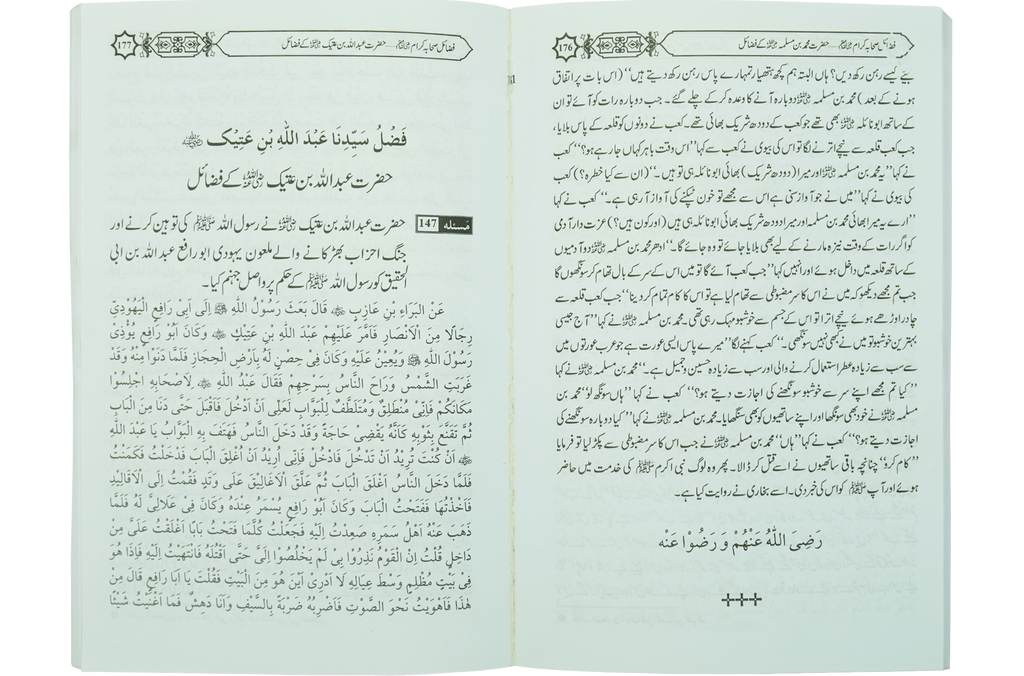 176
فضائل صحابہ کرام رضی اللہ عنہم..... حضرت محمد بن مسلمہ رضی اللہ عنہ کے فضائل
بیٹے کیسے رہن رکھ دیں؟ ہاں البتہ ہم کچھ ہتھیار تمہارے پاس رہن رکھ دیتے ہیں‘‘ (اس بات پر اتفاق
ہونے کے بعد) محمد بن مسلمہ رضی اللہ عنہ دوبارہ آنے کا وعدہ کر کے چلے گئے۔ جب دوبارہ رات کو آئے تو ان
کے ساتھ ابو نائلہ رضی اللہ عنہ بھی تھے جو کعب کے دودھ شریک بھائی تھے۔ کعب نے دونوں کو قلعہ کے پاس بلایا،
جب کعب قلعہ سے نیچے اترنے لگا تو اس کی بیوی نے کعب سے کہا ’’اس وقت باہر کہاں جا رہے ہو؟‘‘ کعب
نے کہا ’’یہ محمد بن مسلمہ رضی اللہ عنہ اور میرا (دودھ شریک) بھائی ابو نائلہ ہی تو ہیں۔‘‘ (ان سے کیا خطرہ؟) کعب
کی بیوی نے کہا ’’میں نے جو آواز سنی ہے اس سے مجھے تو خون ٹپکنے کی آواز آ رہی ہے۔‘‘ کعب نے کہا
’’ارے یہ میرا بھائی محمد بن مسلمہ اور میرا دودھ شریک بھائی ابو نائلہ ہی ہیں (اور کون ہیں؟) عزت دار آدمی
کو اگر رات کے وقت نیزہ مارنے کے لیے بھی بلایا جائے تو وہ جائے گا۔‘‘ ادھر محمد بن مسلمہ رضی اللہ عنہ دو آدمیوں
کے ساتھ قلعہ میں داخل ہوئے اور انہیں کہا ’’جب کعب آئے گا تو میں اس کے سر کے بال تھام کر سونگھوں گا
جب تم مجھے دیکھو کہ میں نے اس کا سر مضبوطی سے تھام لیا ہے تو اس کا کام تمام کر دینا‘‘ جب کعب قلعہ سے
چادر اوڑھے ہوئے نیچے اترا تو اس کے جسم سے خوشبو مہک رہی تھی۔ محمد بن مسلمہ رضی اللہ عنہ نے کہا ’’آج جیسی
بہترین خوشبو تو میں نے کبھی نہیں سونگھی۔‘‘ کعب کہنے لگا ’’میرے پاس ایسی عورت ہے جو عرب عورتوں میں
سب سے زیادہ عطر استعمال کرنے والی اور سب سے زیادہ حسین و جمیل ہے۔‘‘ محمد بن مسلمہ رضی اللہ عنہ نے کہا
’’کیا تم مجھے اپنے سر سے خوشبو سونگھنے کی اجازت دیتے ہو؟‘‘ کعب نے کہا ’’ہاں سونگھ لو‘‘ محمد بن
مسلمہ رضی اللہ عنہ نے خود بھی سونگھا اور اپنے ساتھیوں کو بھی سنگھایا۔ محمد بن مسلمہ رضی اللہ عنہ نے کہا ’’کیا دوبارہ سونگھنے کی
اجازت دیتے ہو؟‘‘ کعب نے کہا ’’ہاں‘‘ محمد بن مسلمہ رضی اللہ عنہ نے جب اس کا سر مضبوطی سے پکڑ لیا تو فرمایا
’’کام کرو‘‘ چنانچہ باقی ساتھیوں نے اسے قتل کر ڈالا۔ پھر وہ لوگ نبی اکرم ﷺ کی خدمت میں حاضر
ہوئے اور آپ ﷺ کو اس کی خبر دی۔ اسے بخاری نے روایت کیا ہے۔
رَضِیَ اللّٰہُ عَنْھُمْ وَ رَضُوْا عَنہ
177
فضائل صحابہ کرام رضی اللہ عنہم..... حضرت عبداللہ بن عتیک رضی اللہ عنہ کے فضائل
فَضْلُ سَیِّدِنَا عَبْدَ اللّٰہِ بْنِ عَتِیْکٍ رضی اللہ عنہ
حضرت عبداللہ بن عتیک رضی اللہ عنہ کے فضائل
مَسئلہ 147 حضرت عبداللہ بن عتیک رضی اللہ عنہ نے رسول اللہ ﷺ کی توہین کرنے اور
جنگ احزاب بھڑکانے والے ملعون یہودی ابو رافع عبداللہ بن ابی
الحقیق کو رسول اللہ ﷺ کے حکم پر واصل جہنم کیا۔
عَنِ الْبَرَاءِ بْنِ عَازِبٍ رضی اللہ عنہ قَالَ بَعَثَ رَسُوْلُ اللّٰہِ ﷺ اِلٰی اَبِیْ رَافِعٍ الْیَھُوْدِیِّ
رِجَالًا مِنَ الْاَنْصَارِ فَاَمَّرَ عَلَیْھِمْ عَبْدَ اللّٰہِ بْنَ عَتِیْکٍ رضی اللہ عنہ وَکَانَ اَبُوْ رَافِعٍ یُؤْذِیْ
رَسُوْلَ اللّٰہِ ﷺ وَیُعِیْنُ عَلَیْہِ وَکَانَ فِیْ حِصْنٍ لَہٗ بِاَرْضِ الْحِجَازِ فَلَمَّا دَنَوْا مِنْہُ وَقَدْ
غَرَبَتِ الشَّمْسُ وَرَاحَ النَّاسُ بِسَرْحِھِمْ فَقَالَ عَبْدُ اللّٰہِ رضی اللہ عنہ لِاَصْحَابِہٖ اجْلِسُوْا
مَکَانَکُمْ فَاِنِّیْ مُنْطَلِقٌ وَمُتَلَطِّفٌ لِلْبَوَّابِ لَعَلِّی اَنْ اَدْخُلَ فَاَقْبَلَ حَتّٰی دَنَا مِنَ الْبَابِ
ثُمَّ تَقَنَّعَ بِثَوْبِہٖ کَاَنَّہٗ یَقْضِیْ حَاجَةً وَقَدْ دَخَلَ النَّاسُ فَھَتَفَ بِہِ الْبَوَّابُ یَا عَبْدَ اللّٰہِ
رضی اللہ عنہ اِنْ کُنْتَ تُرِیْدُ اَنْ تَدْخُلَ فَادْخُلْ فَاِنِّی اُرِیْدُ اَنْ اُغْلِقَ الْبَابَ فَدَخَلْتُ فَکَمَنْتُ
فَلَمَّا دَخَلَ النَّاسُ اَغْلَقَ الْبَابَ ثُمَّ عَلَّقَ الْاَغَالِیْقَ عَلٰی وَتَدٍ فَقُمْتُ اِلَی الْاَقَالِیْدِ
فَاَخَذْتُھَا فَفَتَحْتُ الْبَابَ وَکَانَ اَبُوْ رَافِعٍ یُسْمَرُ عِنْدَہٗ وَکَانَ فِیْ عَلَالِیَّ لَہٗ فَلَمَّا
ذَھَبَ عَنْہُ اَھْلُ سَمَرِہٖ صَعِدْتُ اِلَیْہِ فَجَعَلْتُ کُلَّمَا فَتَحْتُ بَابًا اَغْلَقْتُ عَلَیَّ مِنْ
دَاخِلٍ قُلْتُ اِنِ الْقَوْمُ نَذِرُوْا بِیْ لَمْ یَخْلُصُوْا اِلَیَّ حَتّٰی اَقْتُلَہٗ فَانْتَھَیْتُ اِلَیْہِ فَاِذَا ھُوَ
فِیْ بَیْتٍ مُظْلِمٍ وَسْطَ عِیَالِہٖ لَا اَدْرِیْ اَیْنَ ھُوَ مِنَ الْبَیْتِ فَقُلْتُ یَا اَبَا رَافِعٍ قَالَ مَنْ
ھٰذَا فَاَھْوَیْتُ نَحْوَ الصَّوْتِ فَاَضْرِبُہٗ ضَرْبَةً بِالسَّیْفِ وَاَنَا دَھِشٌ فَمَا اَغْنَیْتُ شَیْئًا